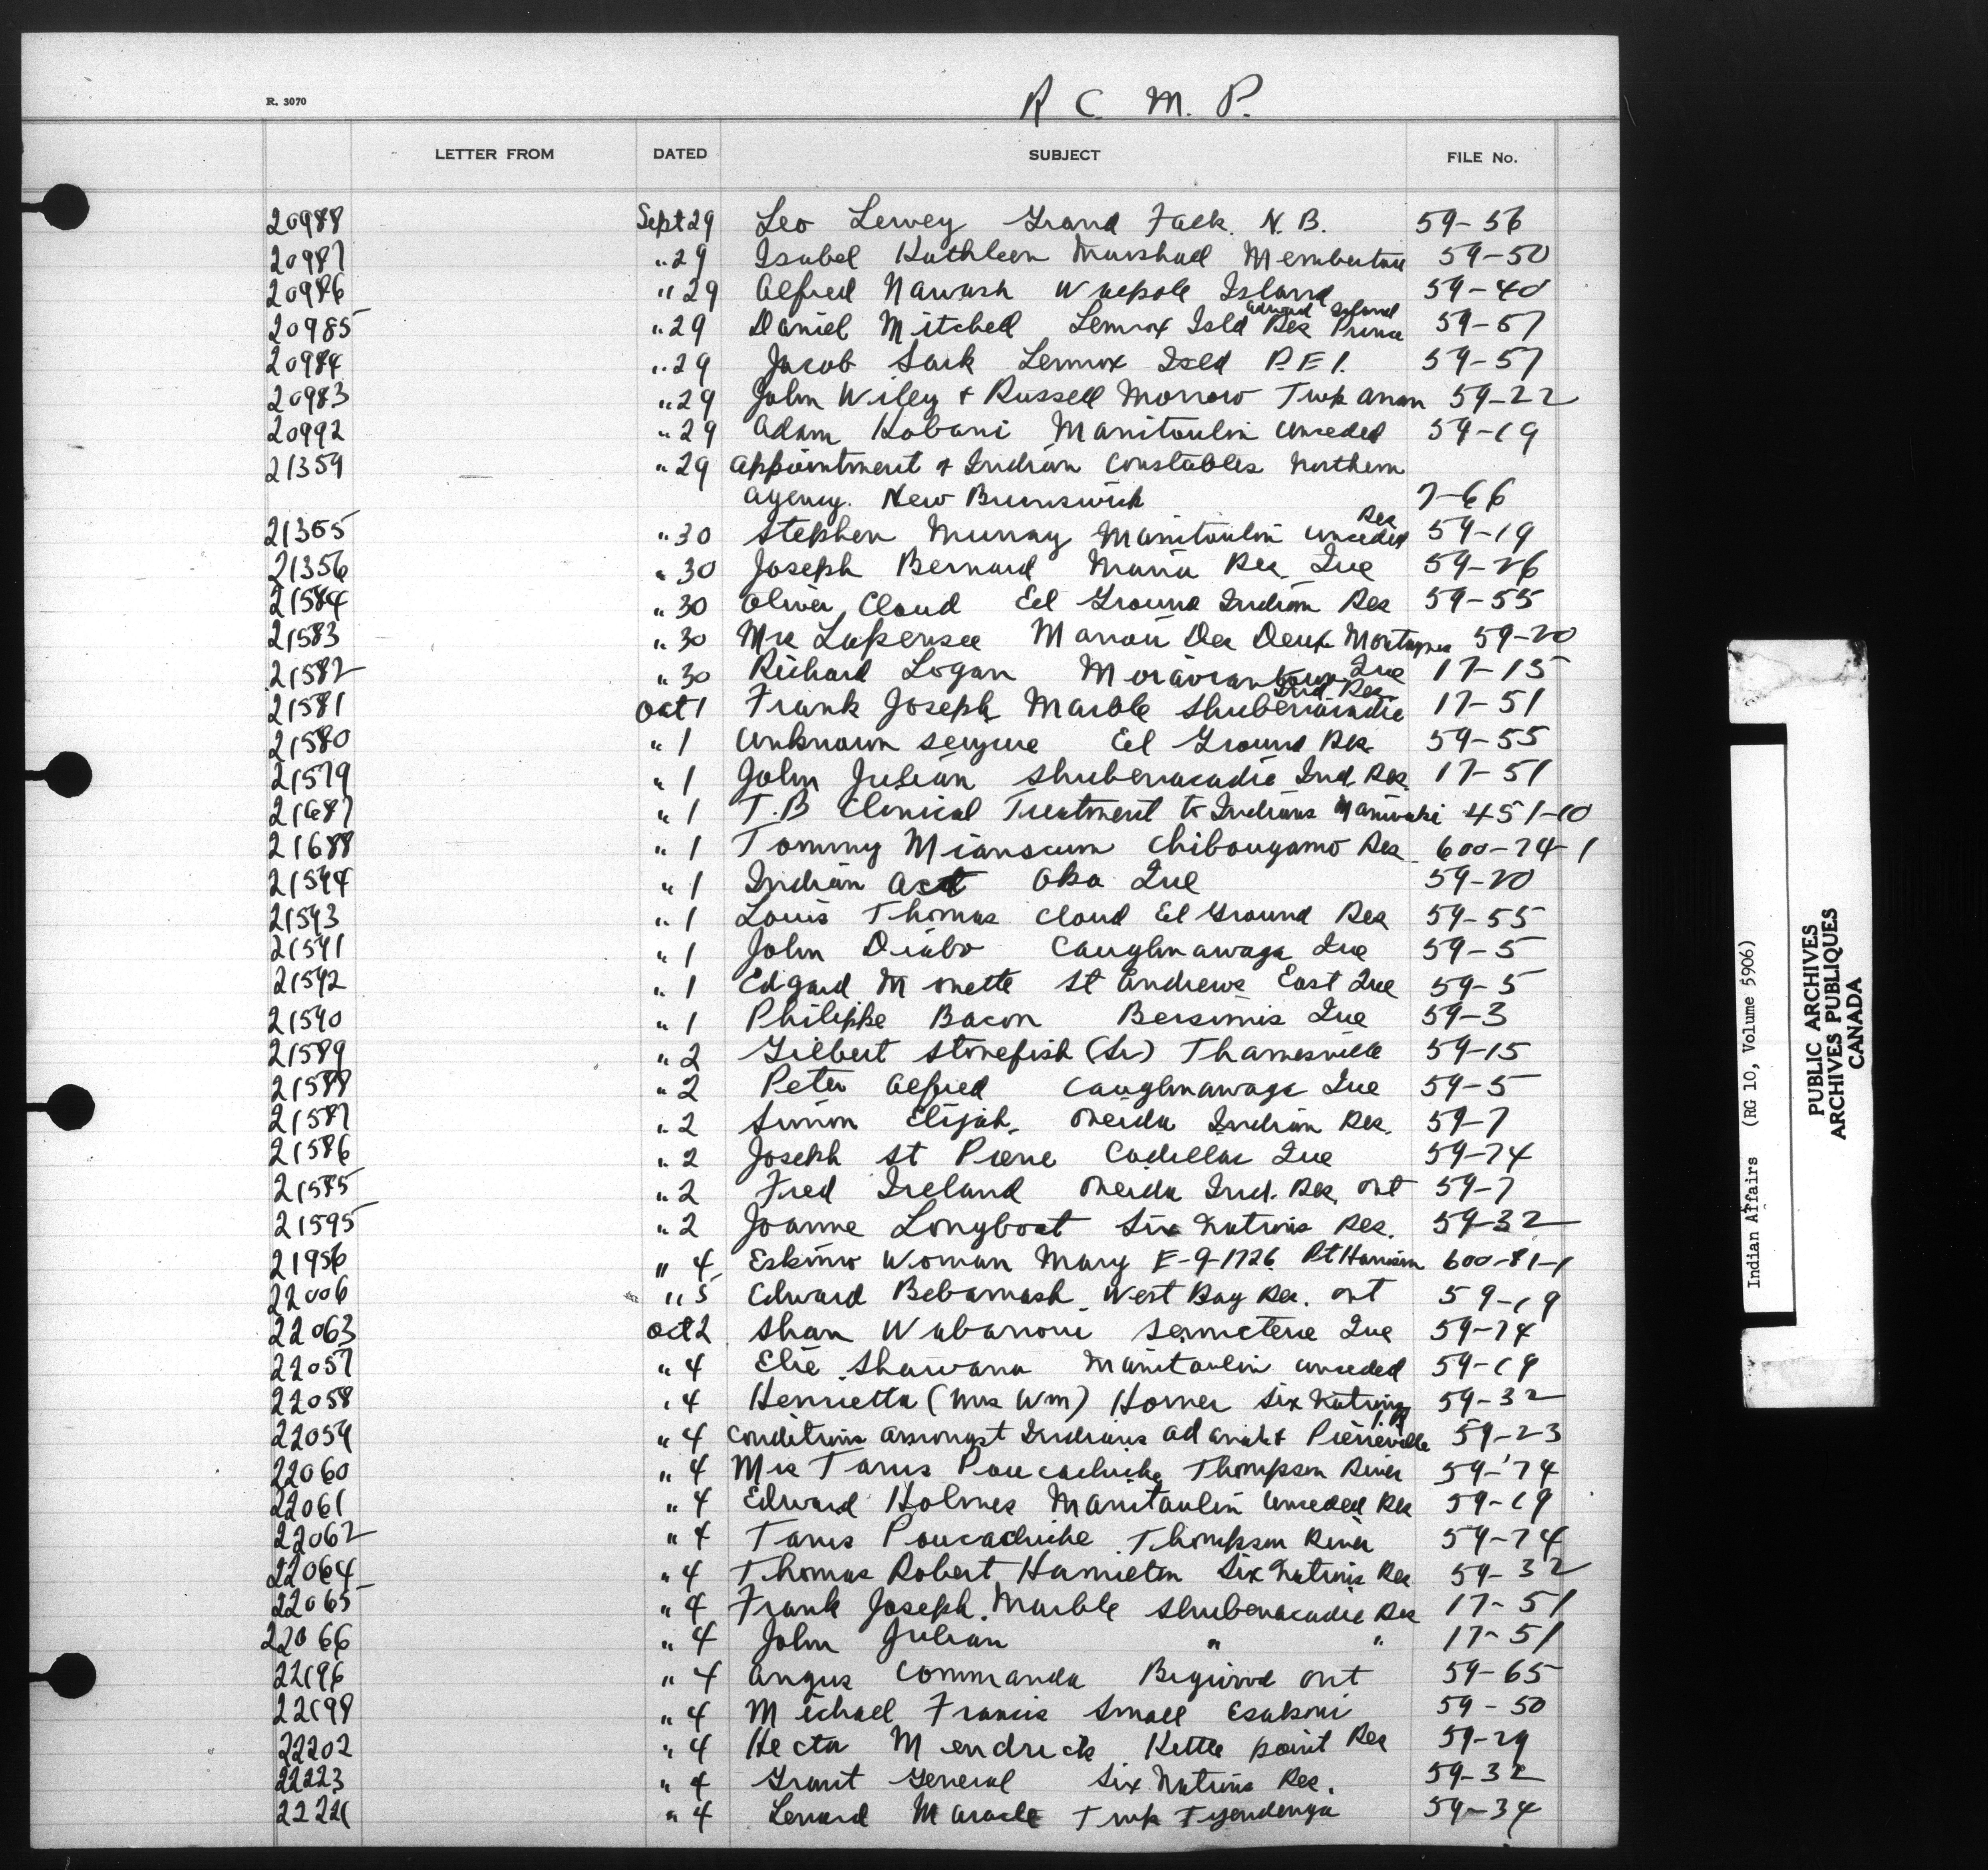 R C. M. P.
R. 3070
LETTER FROM DATED SUBJECT FILE No.
20988 Sept 29 Leo Lewey Grand Falls. N. B. 59-56
20987 " 29 Isabel Kathleen Marshall Membertou 59-50
20986 " 29 Alfred Nawash Walpole Island 59-40
20985 " 29 Daniel Mitchell Lennox Isld Res Prince Edward Island 59-57
20984 " 29 Jacob Sark Lennox Isld P.E.I. 59-57
20983 " 29 John Wiley + Russell Morrow Twp 59-22
20992 " 29 Adam Kobani Manitoulin Unceded 59-19
21359 " 29 Appointment of Indian Constables Northern
Agency. New Brunswick 7-66
21355 " 30 Stephen Murray Manitoulin Unceded Res 59-19
21356 " 30 Joseph Bernard Maria Res. Que 59-26
21584 " 30 Oliver Cloud Eel Ground Indian Res 59-55
21583 " 30 Mrs Lapensee Des Deux Montagnes 59-20
21582 " 30 Richard Logan Moraviantown Que 17-15
21581 Oct 1 Frank Joseph Marble Shubenacadie Ind. Res. 17-51
21580 " 1 Unknown seizure Eel Ground Res. 59-55
21579 " 1 John Julian Shubenacadie Ind. Res. 17-51
21687 " 1 T.B Clinical Treatment to Indians Maniwaki 451-10
21688 " 1 Tommy Mianscum Chibougamo Res. 600-74-1
21594 " 1 Indian Act Oka Que 59-20
21593 " 1 Louis Thomas Cloud Eel Ground Res 59-55
21591 " 1 John Diabo Caughnawaga Que 59-5
21592 " 1 Edgard Monette St Andrews East Que 59-5
21590 " 1 Philippe Bacon Bersimis Que 59-3
21589 " 2 Gilbert Stonefish (Sr) Thamesville 59-15
21588 " 2 Peter Alfred Caughnawaga Que 59-5
21587 " 2 Simon Elijah. Oneida Indian Res. 59-7
21586 " 2 Joseph St Pierre Cadillac Que 59-74
21585 " 2 Fred Ireland Oneida Ind. Res. Ont 59-7
21595 " 2 Joanne Longboat Six Nations Res. 59-32
21956 " 4 Eskimo Woman Mary E-9-1726. Pt Harrison 600-81-1
22006 " 5 Edward Bebamash West Bay Res. Ont 59-19
22063 Oct 2 Shan Wabanoni Senneterre Que 59-74
22057 " 4 Elie Shawana Manitoulin Unceded 59-19
22058 " 4 Henrietta (Mrs Wm) Horner Six Nations I.R 59-32
22059 " 4 Conditions amongst Indians at & Pierreville 59-23
22060 " 4 Mrs Poucachiche Thompson River 59-74
22061 " 4 Edward Holmes Manitoulin Unceded Res 59-19
22062 " 4 Poucachiche Thompson River 59-74
22064 " 4 Thomas Robert Hamilton Six Nations Res 59-32
22065 " 4 Frank Joseph Marble Shubenacadie Res 17-51
22066 " 4 John Julian " " 17-51
22196 " 4 Angus Commanda Bigwood Ont 59-65
22198 " 4 Michael Francis Small Eskasoni 59-50
22202 " 4 Hecta Mendrick Kettle point Res 59-29
22223 " 4 Grant General Six Nations Res. 59-32
22221 " 4 Lenard Maracle Twp Tyendenga 59-34
Indian Affairs (RG 10, Volume 5906)
PUBLIC ARCHIVES
ARCHIVES PUBLIQUES
CANADA